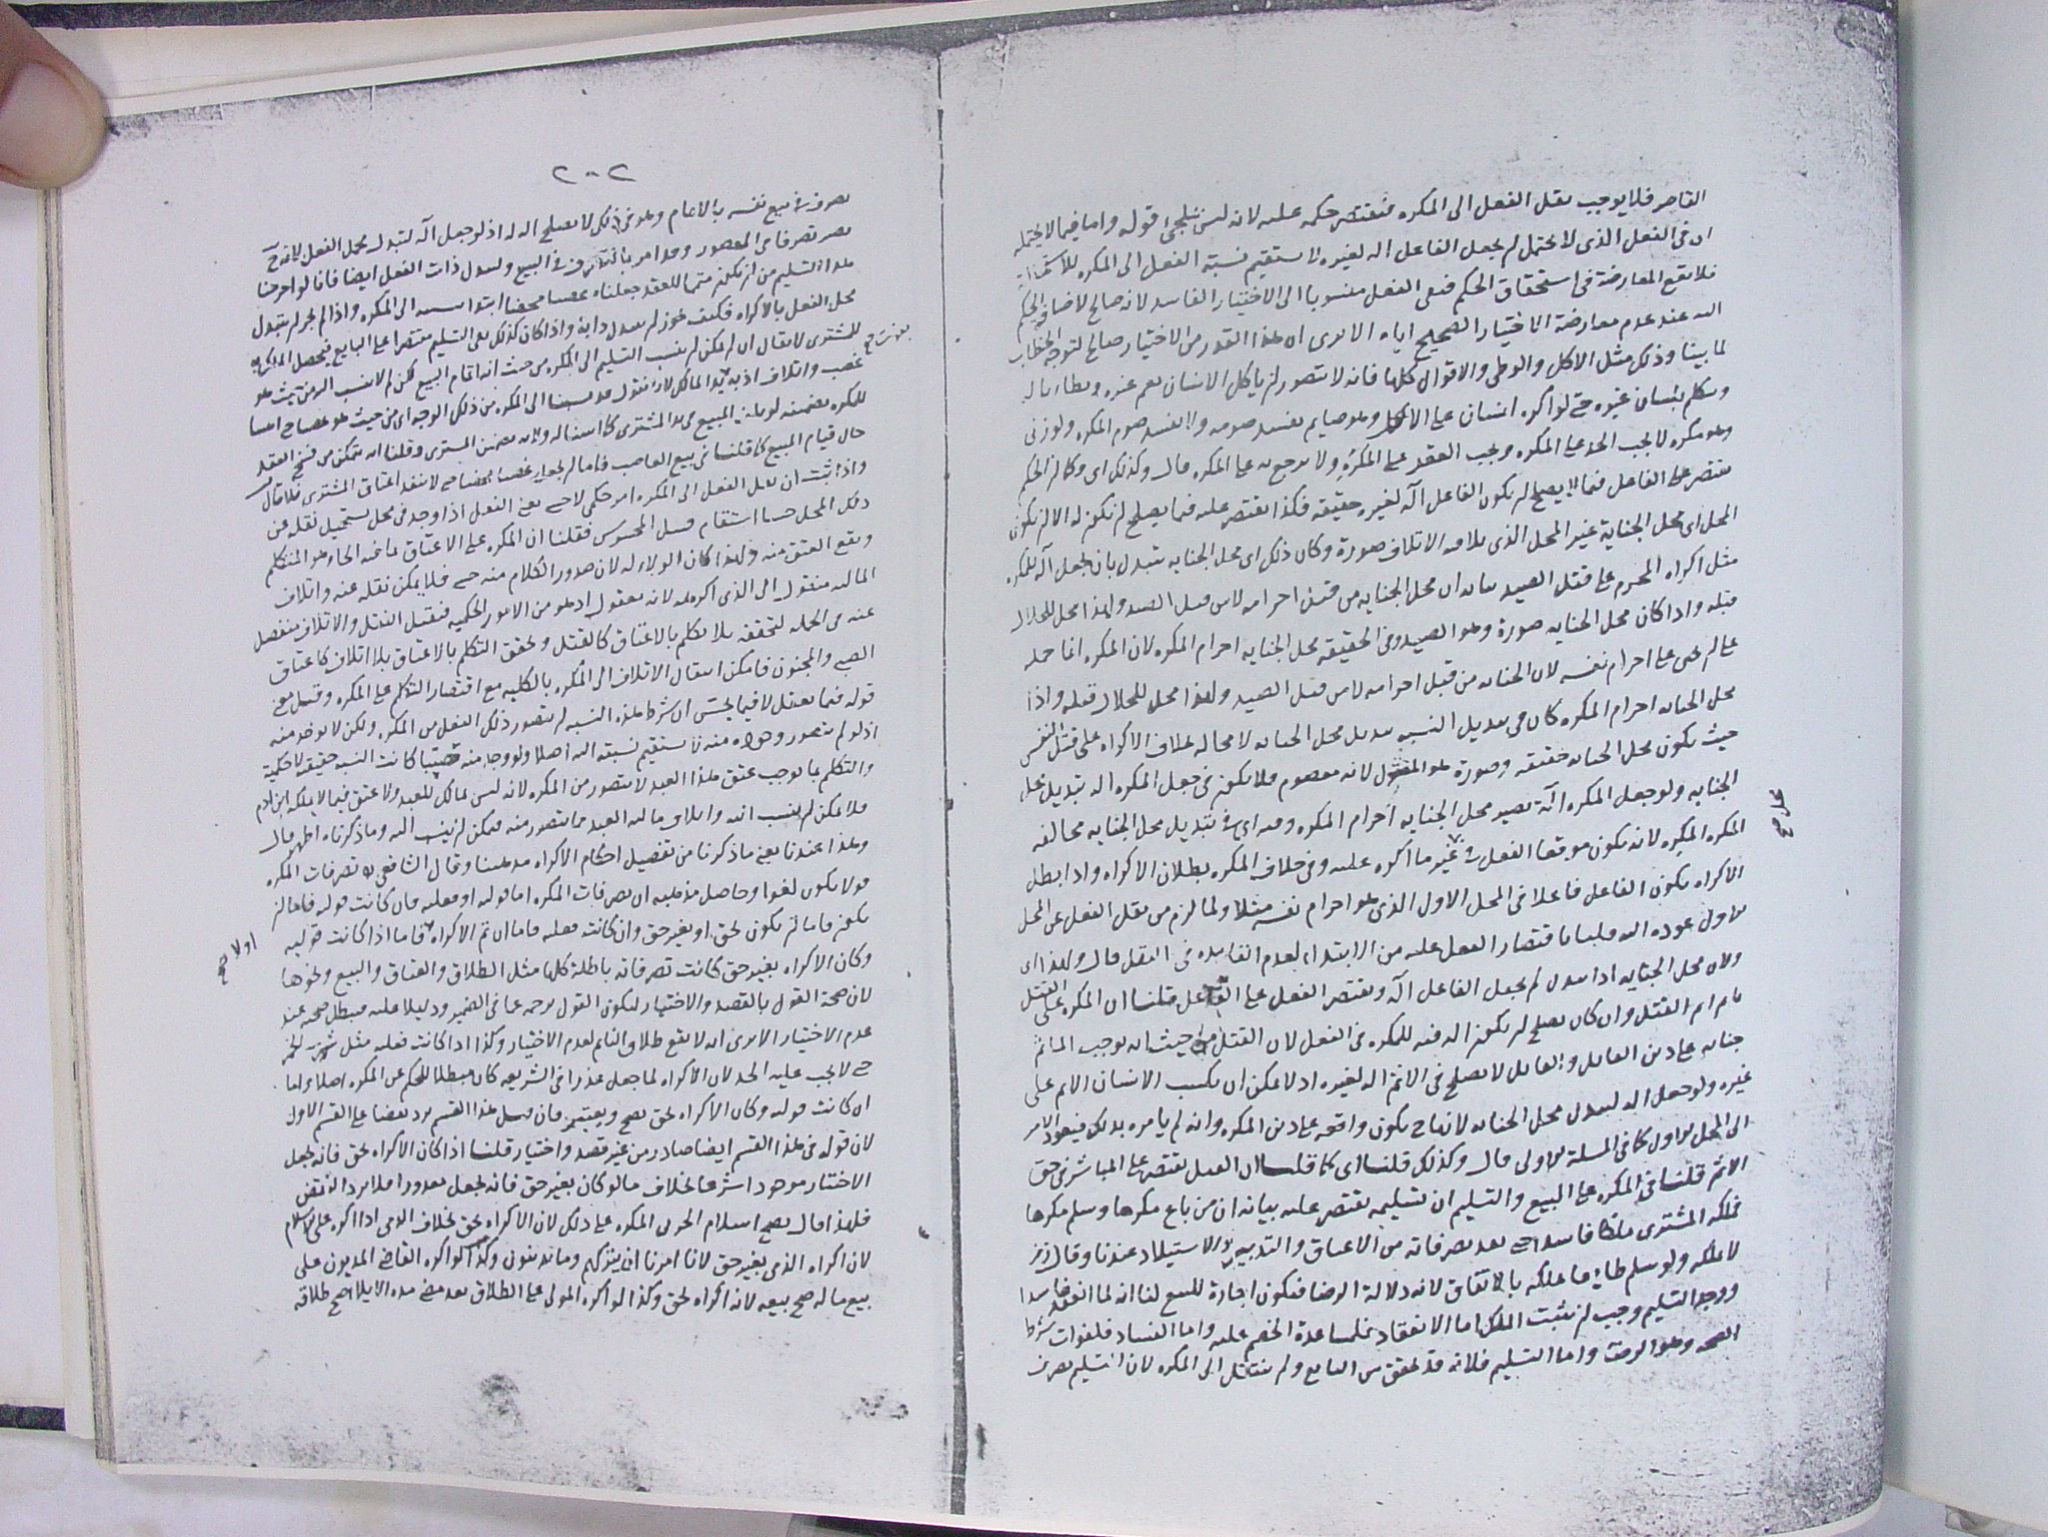 القاصر فلا يوجب نقل الفعل الى المكره فيقتصر حكمه عليه لانه ليس بملجئ قوله واما فيما لا يحتمله
ان فى الفعل الذى لا يحتمل لم يجعل الفاعل اله لغيره لا يستقيم نسبة الفعل الى المكره
فلا يقع المعارضة فى استحقاق الحكم فبقى الفعل منسوبا الى الاختيار الفاسد لانه صالح لاضافة الحكم
اليه عند عدم معارضة الاختيار الصحيح اياه الا يرى ان هذا القدر من الاختيار صالح لتوجه الخطاب
لما بينا وذلك مثل الاكل والوطى والاقوال كلها فانه لا يتصور ان ياكل الانسان بفم غيره
ويتكلم بلسان غيره حتى لو اكره انسان على الاكل وهو صايم يفسد صومه ولا يفسد صوم المكره ولو زنى
وهو مكره لا يجب الحد على المكره ويجب العقر على المكره ولا يرجع به على المكره قال وكذلك اى وكما ان الحكم
يقتصر على الفاعل فيما لا يصلح ان يكون الفاعل آلة لغيره حقيقة فكذا يقتصر عليه فيما يصلح ان يكون له الا ان يكون
المحل اى محل الجناية غير المحل الذى يلاقيه الاتلاف صورة وكان ذلك اى محل الجنايه يتبدل بان يجعل آلة للمكره
مثل اكراه المحرم على قتل الصيد بيانه ان محل الجنايه من قبل احرامه لا من قبل الصيد ولهذا محل للحلال
قتله واذا كان محل الجنايه صورة وهو الصيد وفى الحقيقه محل الجنايه احرام المكره لان المكره انما حمله
على ان يجنى على احرام نفسه لان الجنايه من قبل احرامه لا من قبل الصيد ولهذا محل للحلال قتله واذا
محل الجنايه احرام المكره كان فى تبديل النسبه تبديل محل الجنايه لا محاله بخلاف الاكراه على قتل النفس
حيث يكون محل الجنايه حقيقه وصورة هو المقتول لانه معصوم فلا يكون فى جعل المكره اله تبديل محل
الجنايه ولو جعل المكره آلة يصير محل الجنايه احرام المكره وفيه اى فى تبديل محل الجنايه مخالفه
المكره المكره لانه يكون موقعا الفعل فى غير ما اكره عليه وفى خلاف المكره بطلان الاكراه واذا بطل
الاكراه يكون الفاعل فاعلا فى المحل الاول الذى هو احرام نفسه مثلا ولما لزم من نقل الفعل عن المحل
الاول عوده اليه قلنا باقتصار الفعل عليه من الابتداء لعدم الفايده فى النقل قال ولهذا اى
ولان محل الجنايه اذا تبدل لم يجعل الفاعل آلة ويقتصر الفعل على الفاعل قلنا ان المكره على القتل
ياثم اثم القتل وان كان يصلح ان يكون اله فيه للمكره فى الفعل لان القتل من حيث انه يوجب الماثم
جنايه على دين القاتل والقاتل لا يصلح فى الاثم اله لغيره اذ لا يمكن ان يكسب الانسان الاثم على
غيره ولو جعل اله لتبدل محل الجنايه لانها ح يكون واقعه على دين المكره وانه لم يامره بذلك فيعود الامر
الى المحل الاول كما فى المسلة الاولى قال وكذلك قلنا اى كما قلنا ان الفعل يقتصر على المباشر فى حق
الاثم قلنا فى المكره على البيع والتسليم ان تسليمه يقتصر عليه بيانه ان من باع مكرها وسلم مكرها
تملكه المشترى ملكا فاسدا حتى ينفد تصرفاته من الاعتاق والتدبير والاستيلاد عندنا وقال زفر
لا يملكه ولو سلم طايعا ملكه بالاتفاق لانه دلالة الرضا فيكون اجازة للبيع لنا انه لما انعقد فاسدا
ووجد التسليم وجب ان يثبت الملك اما الانعقاد فلمساعدة الخصم عليه واما الفساد فلفوات شرط
الصحه وهو الرضا واما التسليم فلانه قد تحقق من البايع ولم ينتقل الى المكره لان التسليم تصرف
صح
٢٠٢
تصرف فى بيع نفسه بالاتمام وهو فى ذلك لا يصلح اله له اذ لو جعل آلة لتبدل محل الفعل لانه ح
يصير تصرفا فى المغصوب وقد امر بالتصرف فى البيع ولتبدل ذات الفعل ايضا فانا لو اخرجنا
هذا التسليم من ان يكون متمما للعقد جعلناه غصبا محضا ابتدا بنسبه الى المكره واذا لم يجز ان يتبدل
محل الفعل بالاكراه فكيف يجوز ان يتبدل ذاته واذا كان كذلك بقى التسليم مقتصرا على البايع فيحصل الملك به
للمشترى لا يقال ان لم يكن ان ينسب التسليم الى المكره من حيث انه اتمام البيع لكن لم لا ينسب اليه من حيث هو
غصب واتلاف لانا نقول قد نسبنا الى المكره من ذلك الوجه اى من حيث هو غصب حتى اثبتنا
للمكره تضمينه لو هلك المبيع فى يد المشترى كما اسند اليه ولا يه تضمين المشترى وقلنا انه يتمكن من فسخ العقد
حال قيام المبيع كما قلنا فى بيع الغاصب فاما لم نجعله غصبا محضا حتى لا ينفد اعتاق المشترى فلا قال
واذا ثبت ان نقل الفعل الى المكره امر حكمى لا حسى يعنى الفعل اذا وجد فى محل يستحيل نقله عن
ذلك المحل حسا استقام فيما المحسوس فقلنا ان المكره على الاعتاق بما فيه الجاء هو المتكلم
ويقع العتق منه ولهذا كان الولاء له لان صدور الكلام منه حسى فلا يمكن نقله عنه واتلاف
الماليه منقول الى الذى اكرهه لانه معقول اذ هو من الامور الحكميه فيقبل النقل والاتلاف منفصل
عنه فى الجمله لتحققه بلا تكلم بالاعتاق كالقتل وتحقق التكلم بالاعتاق بلا اتلاف كاعتاق
الصبى والمجنون فامكن انتقال الاتلاف الى المكره بالكليه مع اقتصار التكلم على المكره وقيل معنى
قوله فيما يعقل لا فيما يحس ان شرط هذه النسبه ان يتصور ذلك الفعل من المكره ولكن لا يوجد منه
اذ لو لم يتصور وجوده منه لا يستقيم نسبته اليه اصلا ولو وجد منه حسا كانت النسبه حقيقه لا حكمية
والتكلم بما يوجب عتق هذا العبد لا يتصور من المكره لانه ليس بمالك للعبد ولا عتق فيما لا يملكه ابن ادم
فلا يمكن ان ينسب اليه واتلاف ماليه العبد مما يتصور منه فيمكن ان ينسب اليه وما ذكرناه اظهر قال
وهذا عندنا يعنى ما ذكرنا من تفصيل احكام الاكراه مذهبنا وقال الشافعى تصرفات المكره
قولا يكون لغوا وحاصل مذهبه ان تصرفات المكره اما قوليه او فعليه فان كانت قوليه فاما ان
يكون فاما ان يكون بحق او بغير حق وان كانت فعليه فاما ان تم الاكراه فاما اذا كانت قوليه
وكان الاكراه بغير حق كانت تصرفاته باطلة كلها مثل الطلاق والعتاق والبيع ونحوها
لان صحة القول بالقصد والاختيار ليكون القول ترجمه عما فى الضمير ودليلا عليه فيبطل صحته عند
عدم الاختيار الا يرى انه لا يقع طلاق النايم لعدم الاختيار وكذا اذا كانت فعليه مثل شرب الخمر
حتى لا يجب عليه الحد لان الاكراه لما جعل عذرا فى الشريعه كان مبطلا للحكم عن المكره اصلا واما
ان كانت قوليه وكان الاكراه بحق يصح ويعتبر فان قيل هذا القسم يرد نقضا على القسم الاول
لان قوله فى هذا القسم ايضا صادر من غير قصد واختيار قلنا اذا كان الاكراه بحق فانه يجعل
الاختيار موجودا شرعا بخلاف ما لو كان بغير حق فانه يجعل معذورا فلا يرد النقض
فلهذا قال يصح اسلام الحربى المكره على ذلك لان الاكراه بحق بخلاف الذمى اذا اكره على الاسلام
لان اكراه الذمى بغير حق لانا امرنا ان نتركهم وما يدينون وكذا لو اكره القاضى المديون على
بيع ماله صح بيعه لانه اكراه بحق وكذا لو اكره المولى على الطلاق بعد مضى مدة الايلاء صح طلاقه
اولا صح